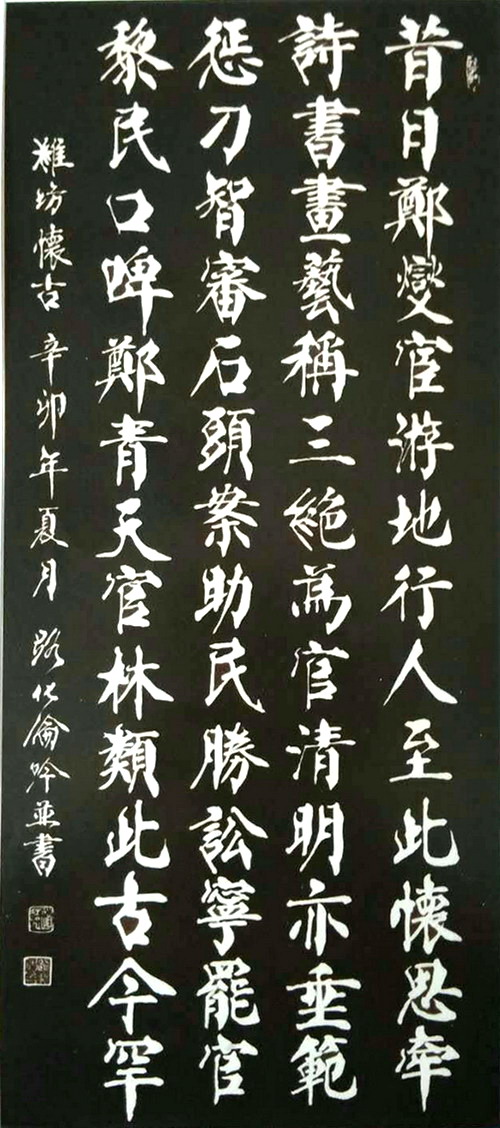 昔日鄭燮宦游地行人至此懷思牽
詩書畫藝稱三絕為官清明亦垂範
惩刀智審石頭案助民勝訟寧罷官
黎民口啤鄭青天官林類此古今罕
濰坊懷古 辛卯年夏月 路化倫吟並書